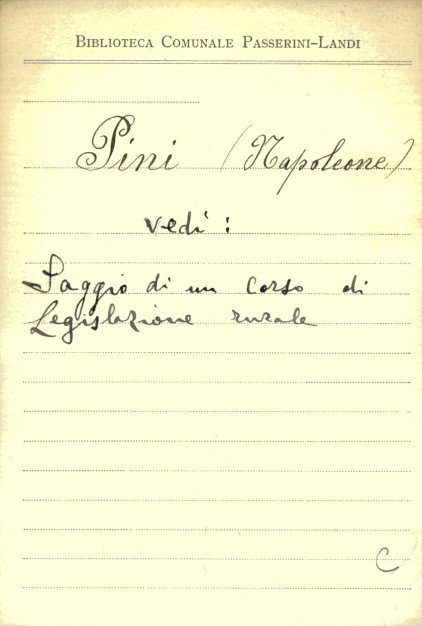 BIBLIOTECA COMUNALE PASSERINI-LANDI
Pini (Napoleone)
vedi :
Saggio di un corso di
Legislazione rurale
C